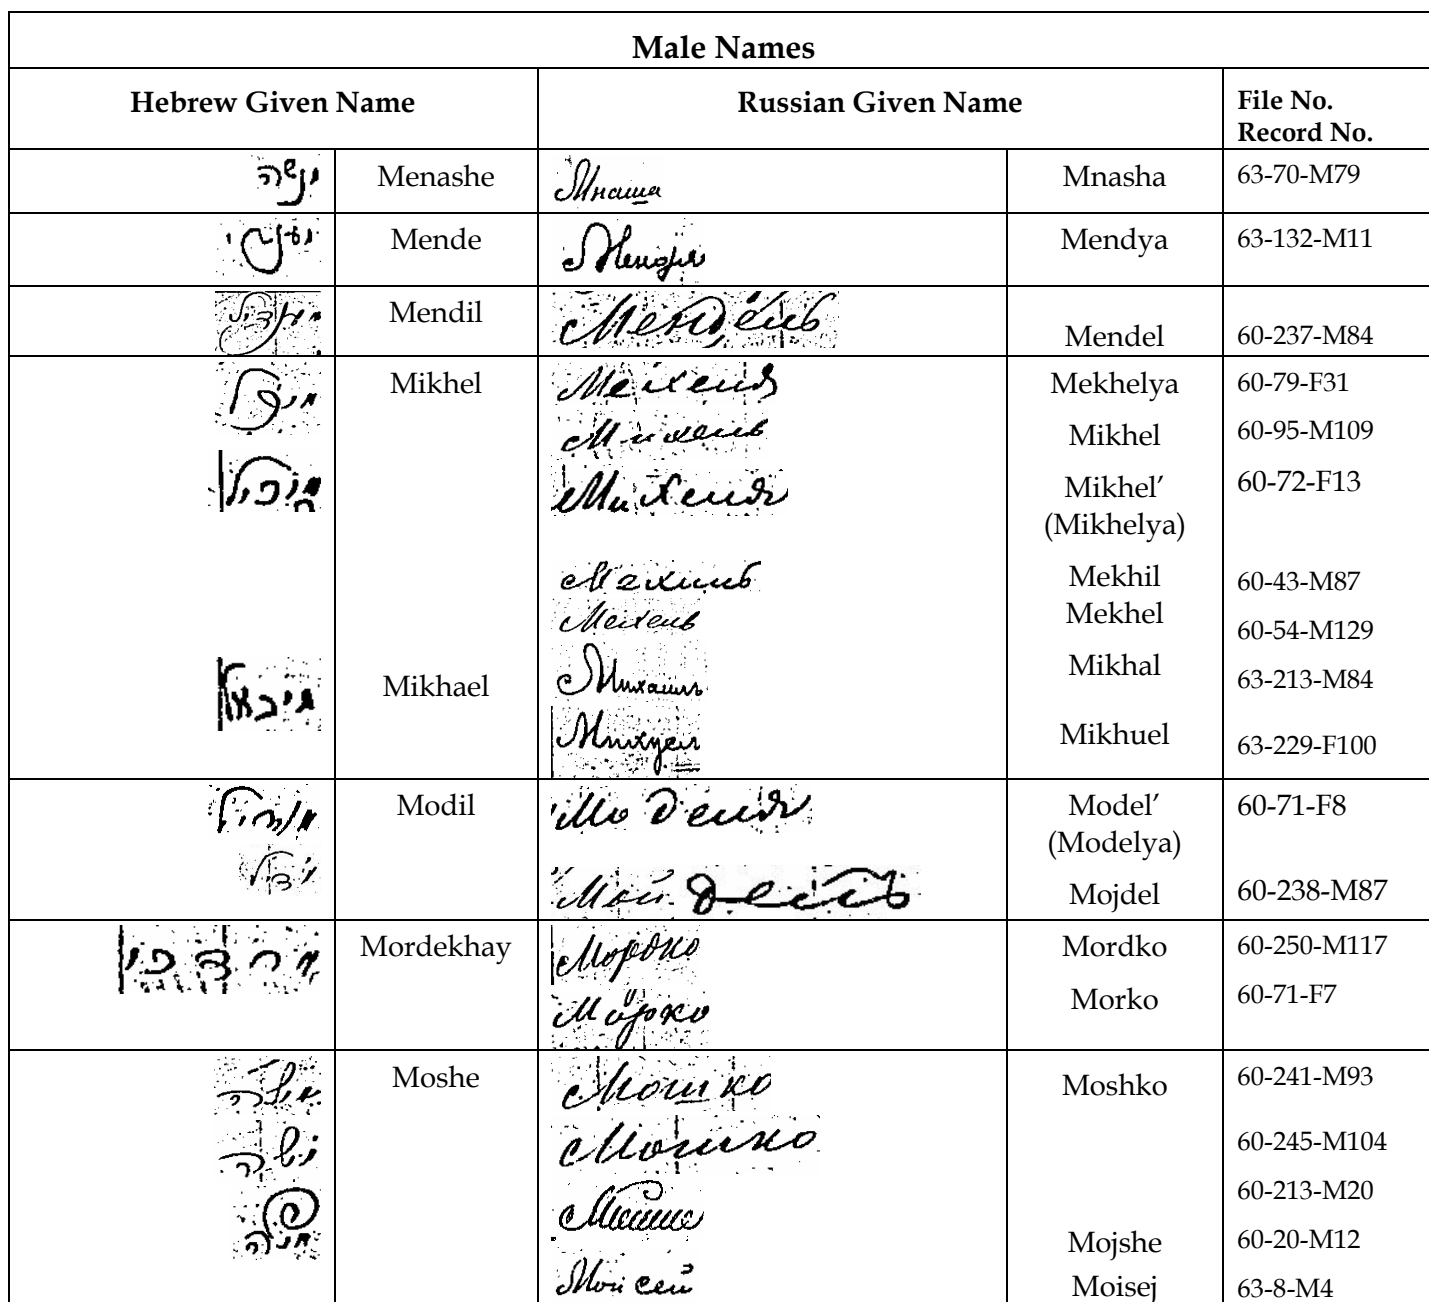 Male Names
Hebrew Given Name Russian Given Name File No.
Record No.
מנשה Menashe Мнаша Mnasha 63-70-M79
Mende Мендя Mendya 63-132-M11
מענדיל Mendil Мендель Mendel 60-237-M84
מיכל Mikhel Мехеля Mekhelya 60-79-F31
Михель Mikhel 60-95-M109
מיכיל Михеля Mikhel’ 60-72-F13
(Mikhelya)
Мехиль Mekhil 60-43-M87
Мехель Mekhel 60-54-M129
מיכאל Mikhael Михаил Mikhal 63-213-M84
Михуел Mikhuel 63-229-F100
מודיל Modil Моделя Model’ 60-71-F8
(Modelya)
Мойдель Mojdel 60-238-M87
מרדכי Mordekhay Мордко Mordko 60-250-M117
Морко Morko 60-71-F7
משה Moshe Мошко Moshko 60-241-M93
משה Мошко 60-245-M104
60-213-M20
Mojshe 60-20-M12
Мойсей Moisej 63-8-M4